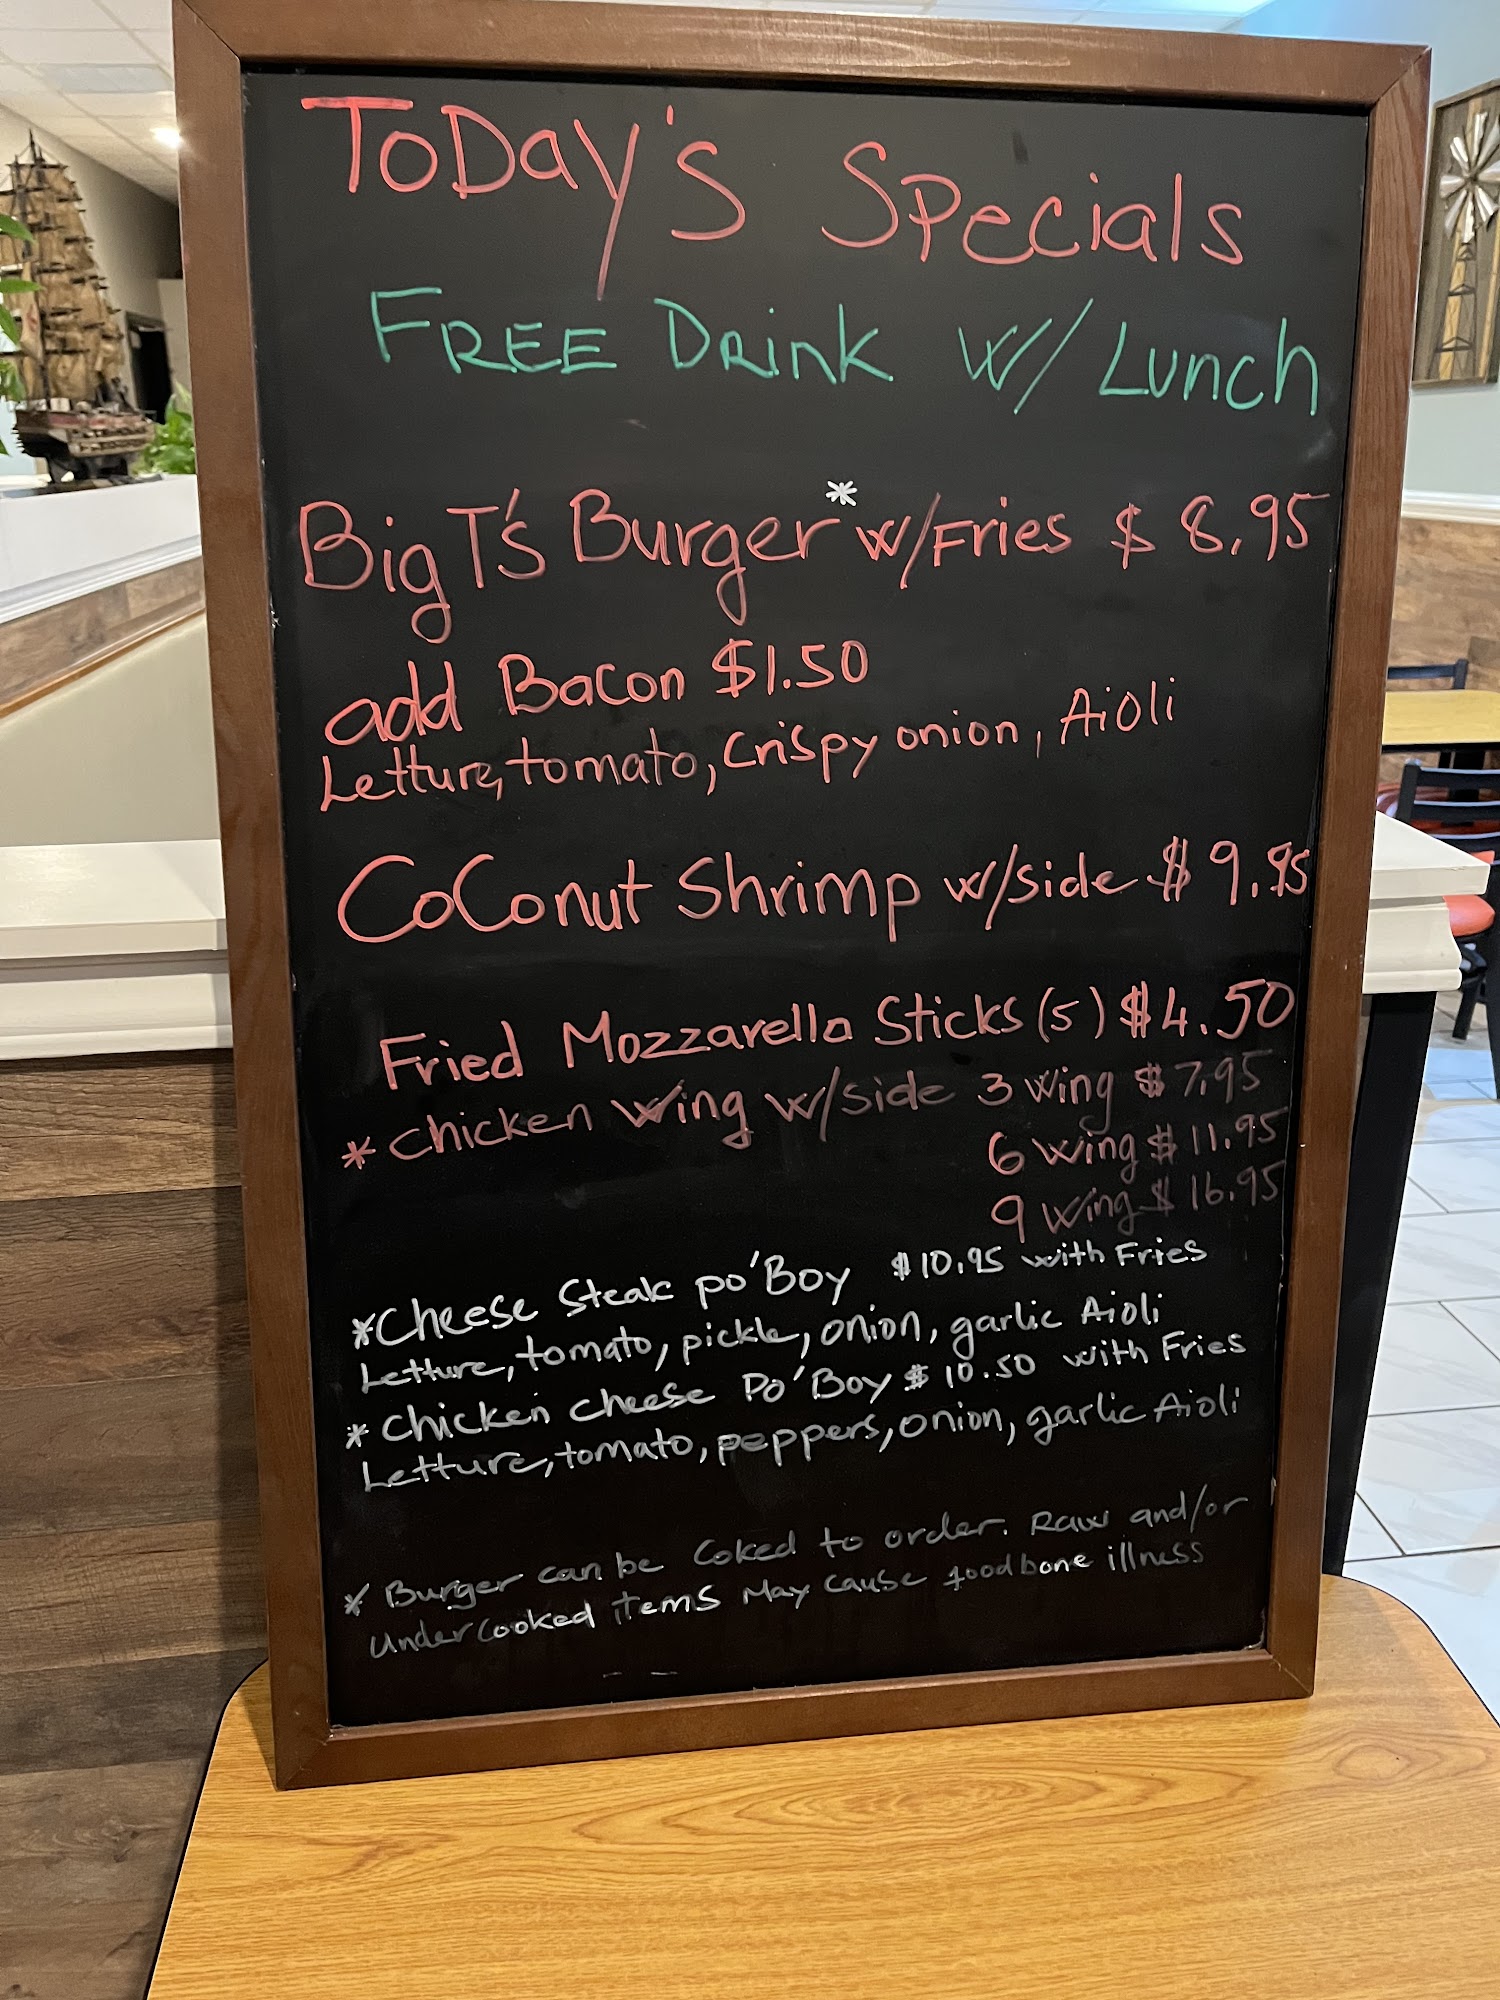 ToDay's Specials
FREE Drink w/ Lunch
Big T's Burger* w/Fries $ 8.95
add Bacon $1.50
Letture, tomato, Crispy onion, Aioli
CoConut Shrimp w/side $ 9.95
Fried Mozzarella Sticks (5) $4.50
* Chicken Wing w/side 3 wing $ 7.95
6 wing $ 11.95
9 wing $ 16.95
*Cheese Steak po'Boy $10.95 with Fries
Letture, tomato, pickle, onion, garlic Aioli
* Chicken Cheese Po'Boy $ 10.50 with Fries
Letture, tomato, peppers, onion, garlic Aioli
* Burger can be Coked to order. Raw and/or
undercooked items May cause foodbone illness